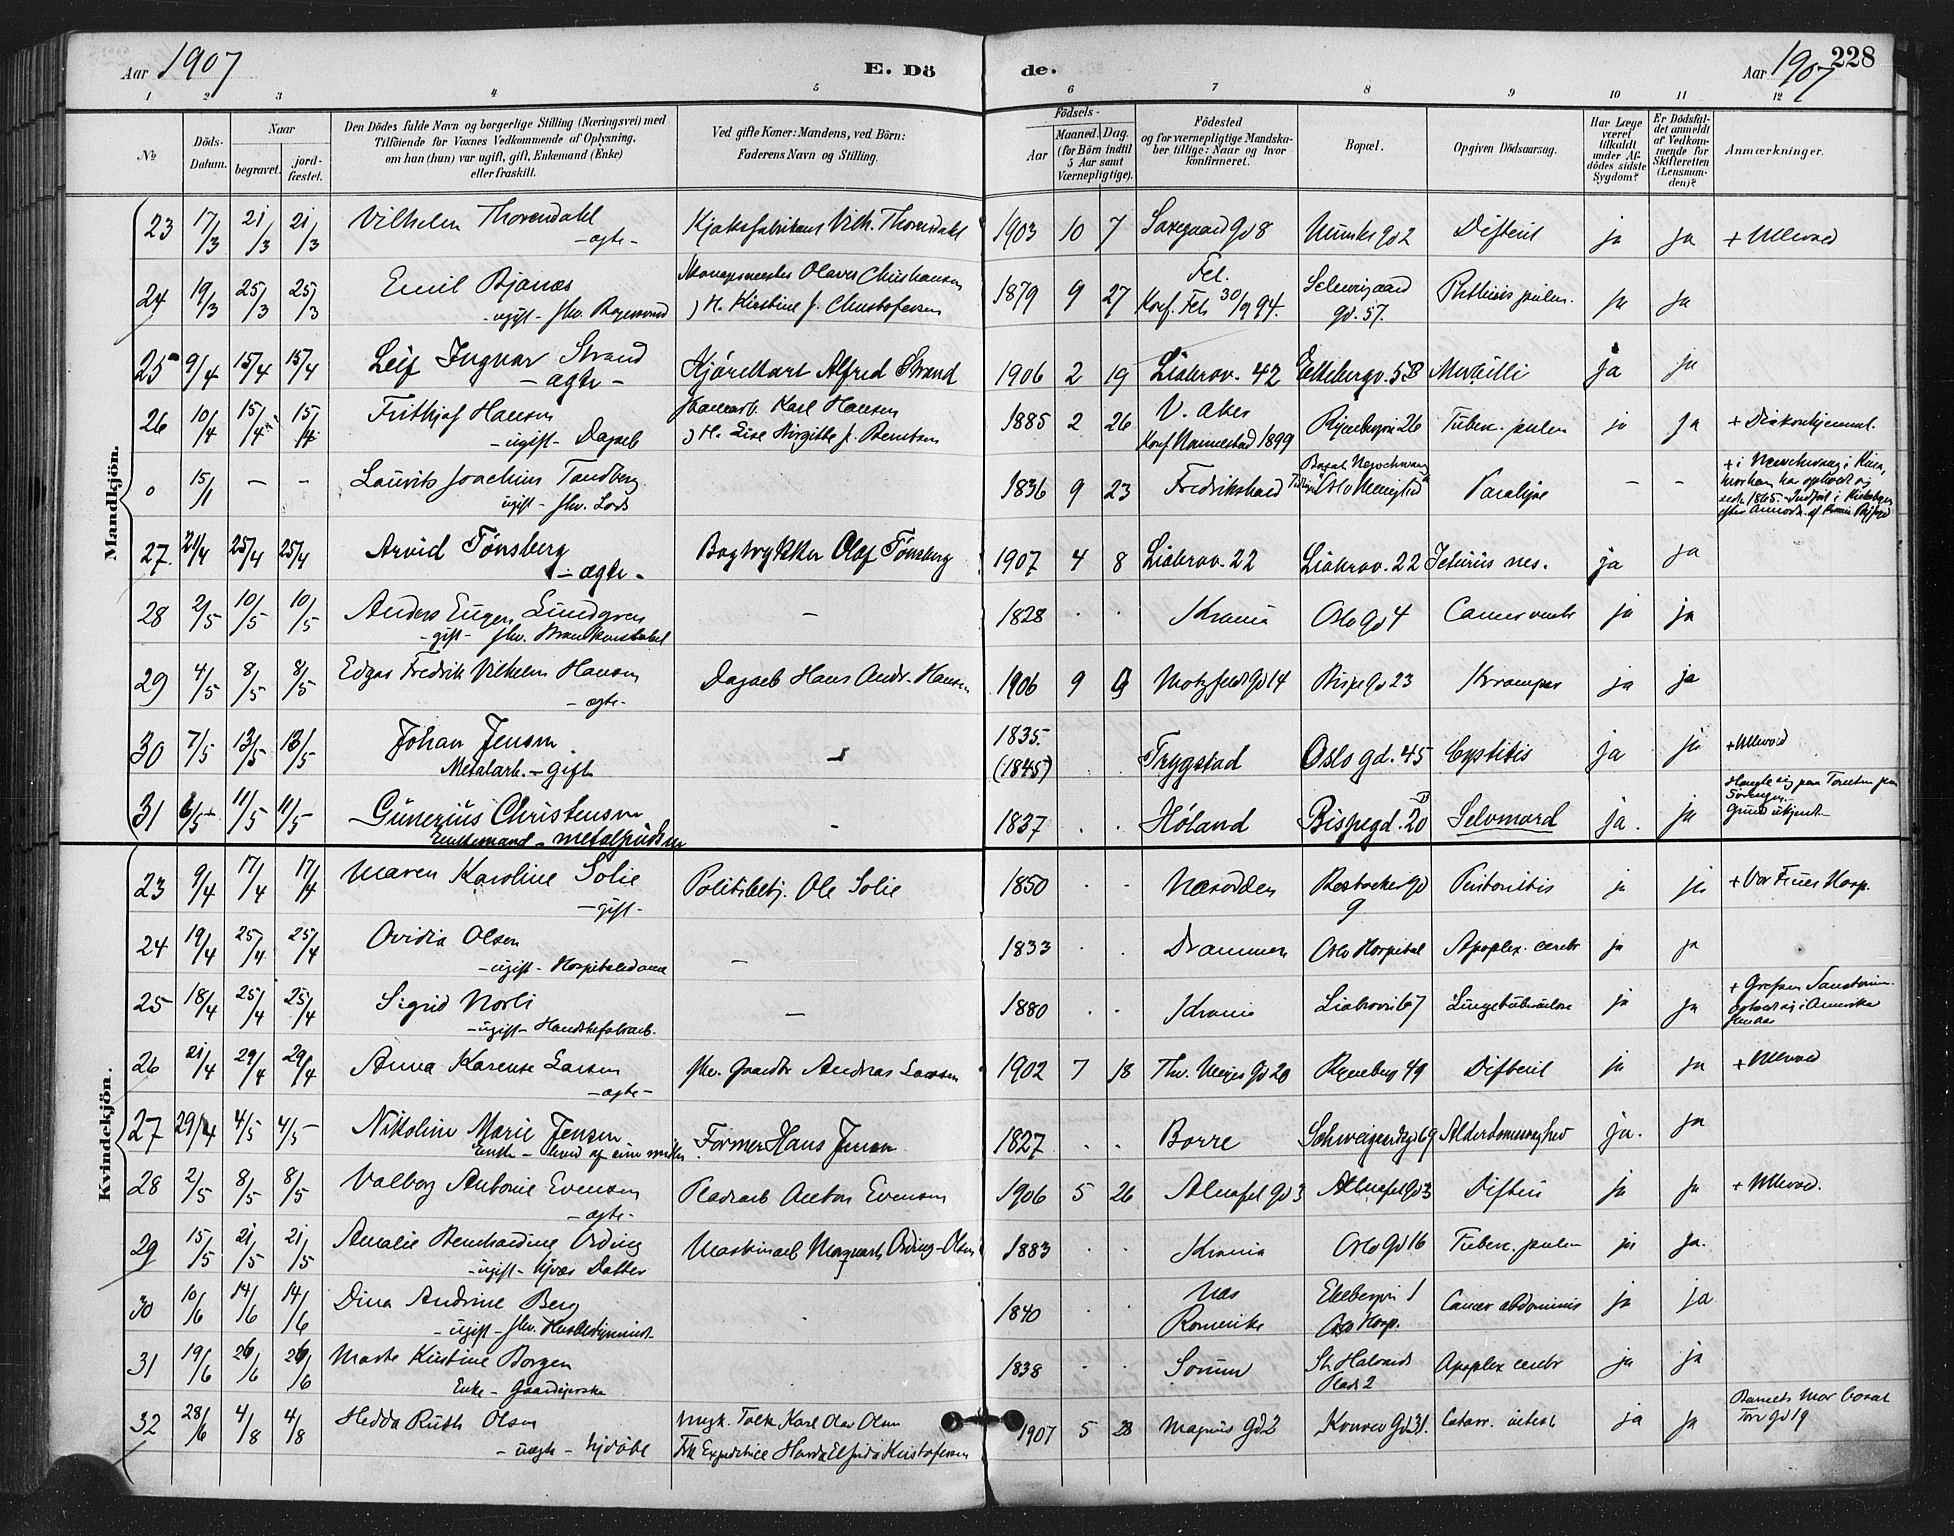 Aar 1907
E. Dö
de.
Aar 1907
228
1 2 3 4 5 6 7 8 9 10 11 12
№
Döds-
Datum.
Naar
begravet.
jord-
fæstet.
Den Dödes fulde Navn og borgerlige Stilling (Næringsvei) med
Tilföiende for Voxnes Vedkommende af Oplysning,
om han (hun) var ugift, gift, Enkemand (Enke)
eller fraskilt.
Ved gifte Koner: Mandens, ved Börn:
Faderens Navn og Stilling.
Födsels-
Aar
Maaned. Dag.
(for Börn indtil
5 Aar samt
Værnepligtige).
Födested
og for værnepligtige Mandska-
ber tillige: Naar og hvor
konfirmeret.
Bopæl.
Opgiven Dödsaarsag.
Har Læge
været
tilkaldt
under Af-
dödes sidste
Sygdom?
Er Dödsfal-
det anmeldt
af Vedkom-
mende for
Skifteretten
(Lensman-
den)?
Anmærkninger.
Mandkjön.
23 17/3 21/3 21/3 Vilhelm Thorendahl Vilh. Thorendahl 1903 10 7 Saxegaard Gd 8 Munke gd 2 Difterit ja ja + Ullevaal
- ægte -
24 19/3 25/3 25/3 Emil Bjanæs Olaves Christiansen 1879 9 27 Fet. Schweigaard Phthisis pulm. ja ja
- ugift - fhv. Bogesvend J. H. Kirstine f. Christofersen Konf. Fet 30/9 94. gd. 57.
25 9/4 15/4 15/4 Leif Ingvar Strand Kjörekarl Alfred Strand 1906 2 19 Liabrov. 42 Ekebergv. 5B ja ja
- ægte -
26 10/4 15/4 15/4 Frithjof Hansen Karl Hansen 1885 2 26 V. Aker 26 Tuberc. pulm ja ja + Diakonhjemmet.
- ugift - Dagarb f. Berntsen Konf 1899
0 15/1 - - Laurits Joachim Tandberg 1836 9 23 Fredrikshald Paralyse - -
ugift - fhv. Lods
27. 21/4 25/4 25/4 Arvid Tönsberg Bogtrykker Olaf Tönsberg 1907 4 8 Liabrov. 22 Liabrov. 22 Icterus neo. ja ja
- ægte -
28 2/5 10/5 10/5 Anders Eugen Lundgren - 1828 . . Krania Oslo Gd 4 Cancer ventr ja ja
- gift - fhv. Brandkonstabel
29 4/5 8/5 8/5 Edgar Fredrik Vilhelm Hansen Dagarb Hans Andr. Hansen 1906 9 9 Motzfeldt Gd 14 Bispe Gd 23 Kramper ja ja
- ægte -
30 7/5 13/5 13/5 Johan Jensen 1835. Trygstad Oslo gd. 45 Cystitis ja ja + Ullevaal
Metalarb. - gift (1845)
31 6/5 11/5 11/5 Gunerius Christensen - 1837 . . Höland Bispegd. 20 Selvmord ja. ja
Enkemand - metalpudser Grund ukjendt
Kvindekjön.
23 9/4 17/4 17/4 Maren Karoline Solie Politibetj. Ole Solie 1850 . . Næsodden 9 Peritonitis ja ja + Vor Frues Hosp.
- gift -
24 19/4 25/4 25/4 Ovidia Olsen - 1833 . . Drammen Oslo Hospital Apoplex. cerebr ja ja
- ugift - Hospitalslem
25 18/4 25/4 25/4 Sigrid Norli - 1880 . . Krania Liabrovei 67 Lungetuberkulose ja ja + Grefsen Sanatorium.
- ugift - Handskefabrarb.
26 21/4 29/4 29/4 Anna Karense Larsen fhv. Gaardbr Andreas Larsen 1902 7 18 Thv. Meyers Gd 20 Ryenberg 49 Difterit ja ja + Ullevaal
- ægte -
27 29/4 4/5 4/5 Nikoline Marie Jensen Former Hans Jensen 1827 . . Borre Schweigaardsgd 69 Alderdomssvaghed ja. ja
Enke - levede af sine midler
28 2/5 8/5 8/5 Valborg Antonie Evensen Pladsarb Anton Evensen 1906 5 26 Alnafet Gd 3 Alnafet Gd 3 Difteri ja ja + Ullevaal.
- ægte -
29 15/5 21/5 21/5 Amalie Bernhardine Örding Maskinarb Örding-Olsen 1883 . . Krania Oslo Gd 16 Tuberc. pulm ja ja.
- ugift - hjvær. Datter
30 10/6 14/6 14/6 Dina Andrine Berg . 1840 . . Næs Ekebergvei 1 Cancer abdominis ja ja
- ugift - fhv. Husbestyrerinde Romerike Oslo Hosp.
31 19/6 26/6 26/6 Marte Kirstine Borgen . 1838 . . Sörum St. Halvards Apoplex cerebr ja ja
Enke - Gaardejerske Plads 2
32 28/6 4/8 4/8 Hedda Ruth Olsen ungk. Karl Olav Olsen 1907 5 28 Magnus Gd 2 Konow Gd 31. Catarr. intest ja ja Barnets Mor
- uægte - Frk Expeditrice